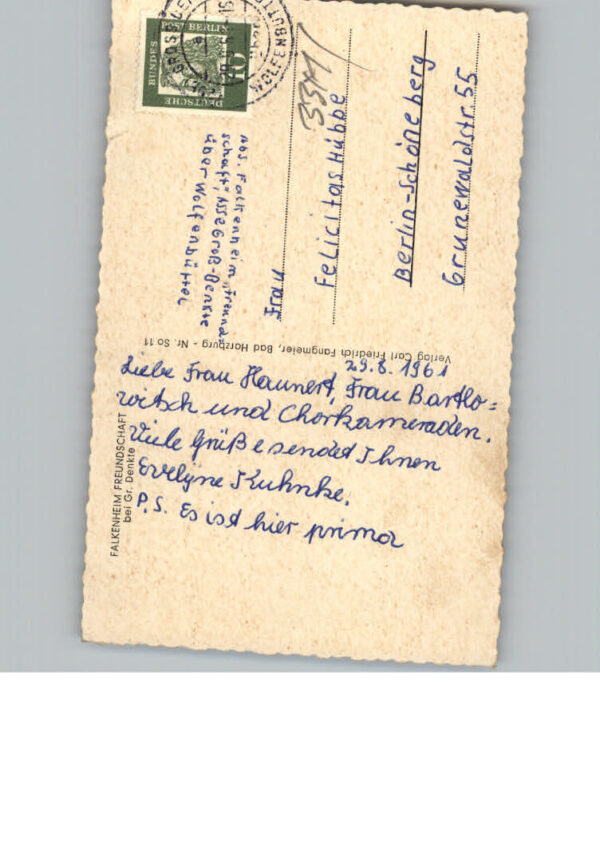 29.8.1961
Liebe Frau Haunert, Frau Bartlo=
witsch und Chorkameraden.
Viele Grüße sendet Ihnen
Evelyne Kuhnke.
P.S. Es ist hier prima
FALKENHEIM FREUNDSCHAFT
bei Gr. Denkte
Verlag Carl Friedrich Fangmeier, Bad Harzburg - Nr. So 11
Abs. Falkenheim „Freund-
schaft", Asse Groß-Denkte
über Wolfenbüttel
Frau
Felicitas Hübbe
Berlin-Schöneberg
Grunewaldstr. 55
DEUTSCHE
BUNDES
POST BERLIN
10
WOLFENBÜTTEL